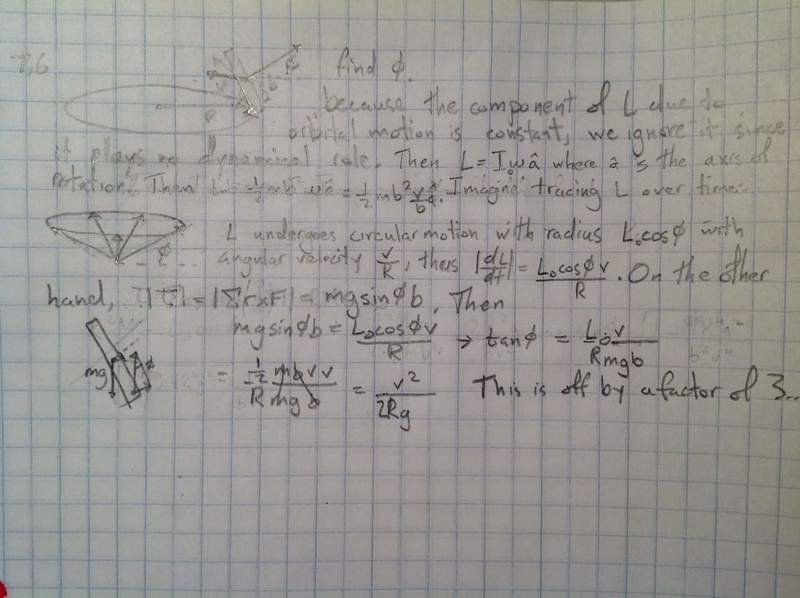 7.6
find φ.
because the component of L due to
orbital motion is constant, we ignore it since
it plays no dynamical role. Then L = I₀ωâ where â is the axis of
rotation. Then L = ½mb²ωâ = ½mb² v/b â. Imagine tracing L over time:
R
φ
L undergoes circular motion with radius L₀cosφ with
angular velocity v/R, thus |dL/dt| = L₀cosφv/R. On the other
hand, |τ| = |Σr×F| = mgsinφb. Then
mgsinφb = L₀cosφv/R → tanφ = L₀v/Rmgb
mg φ
= ½mbvv/Rmgb = v²/2Rg This is off by a factor of 3..